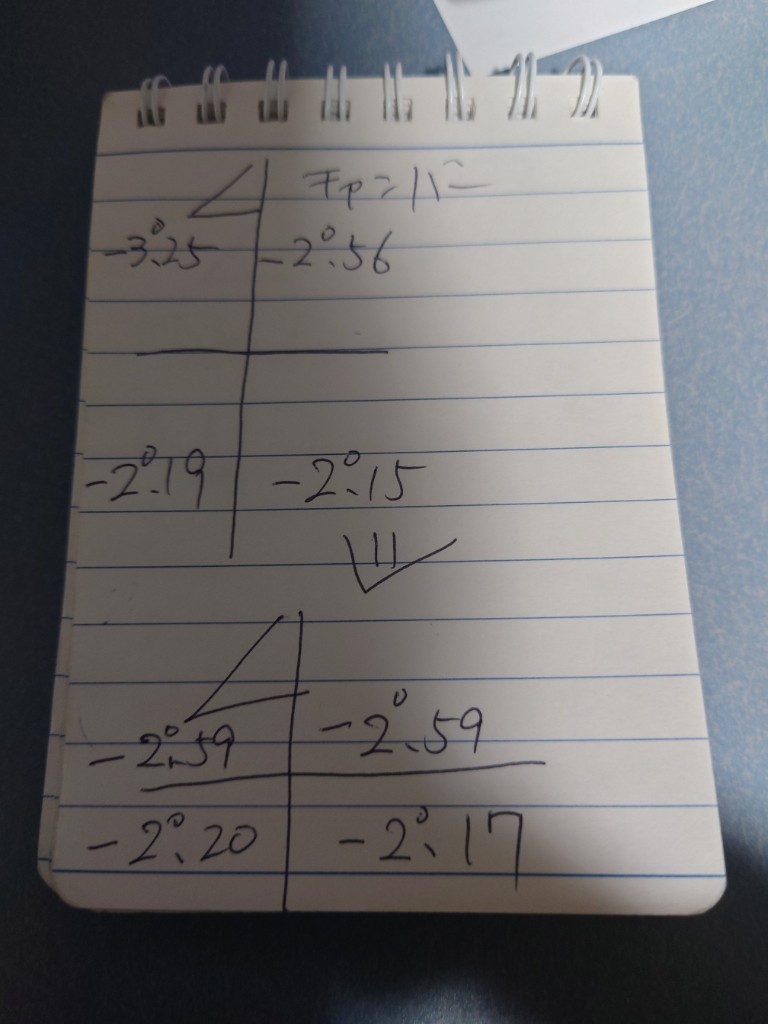 キャンバー
-3°.25 -2°.56
-2°.19 -2°.15
-2°.59 -2°.59
-2°.20 -2°.17